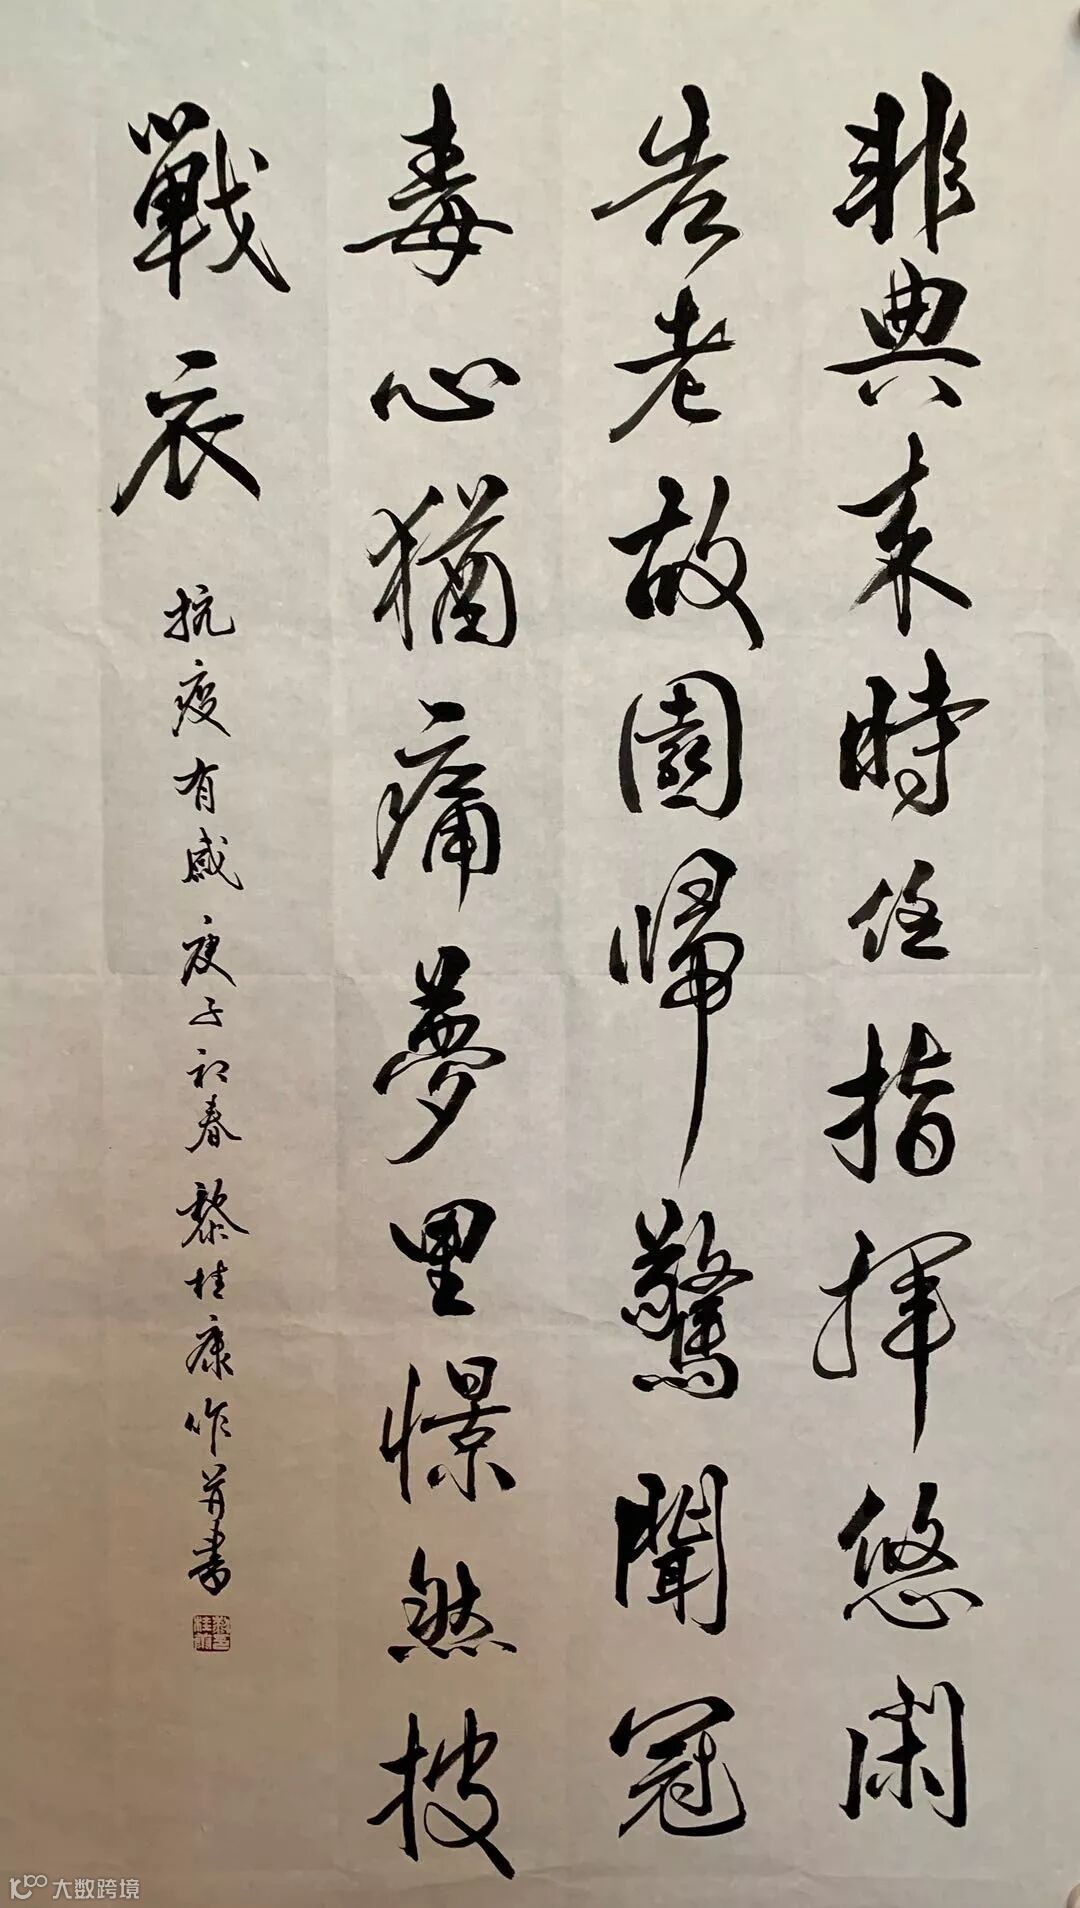 非典来時任指揮悠閑
告老故園歸驚聞冠
毒心猶痛夢里憬然披
戰衣
抗疫有感庚子初春黎桂康作并書
大数跨境